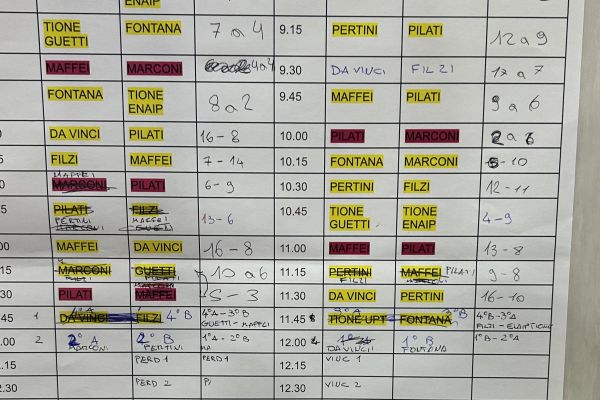 ENAIP
TIONE GUETTI FONTANA 7 a 4 9.15 PERTINI PILATI 12 a 9
MAFFEI MARCONI 4 a 4 9.30 DA VINCI FILZI 17 a 7
FONTANA TIONE ENAIP 8 a 2 9.45 MAFFEI PILATI 9 a 6
DA VINCI PILATI 16 - 8 10.00 PILATI MARCONI 2 a 6
FILZI MAFFEI 7 - 14 10.15 FONTANA MARCONI 5 - 10
MAFFEI
MARCONI PILATI 6 - 9 10.30 PERTINI FILZI 12 - 11
PILATI FILZI 13 - 6 10.45 TIONE GUETTI TIONE ENAIP 4 - 9
PERTINI MAFFEI
MARCONI GUETTI
MAFFEI DA VINCI 16 - 8 11.00 MAFFEI PILATI 13 - 8
MARCONI GUETTI 10 a 6 11.15 PERTINI MAFFEI PILATI 9 - 8
FILZI PILATI FILZI
PILATI MAFFEI 5 - 3 11.30 DA VINCI PERTINI 16 - 10
45 1 DA VINCI 4°A FILZI 4°B 4°A - 3°B 11.45 TIONE UPT FONTANA 3°B 4°B - 3°A
GUETTI - MAFFEI FILZI - ENAIP TIONE
2 2°A 2°B 1°A - 2°B 12.00 1°B 1°B - 2°A
MARCONI PERTINI DA VINCI FONTANA
12.15 PERD 1 PERD 1 12.15 VINC 1
12.30 PERD 2 12.30 VINC 2